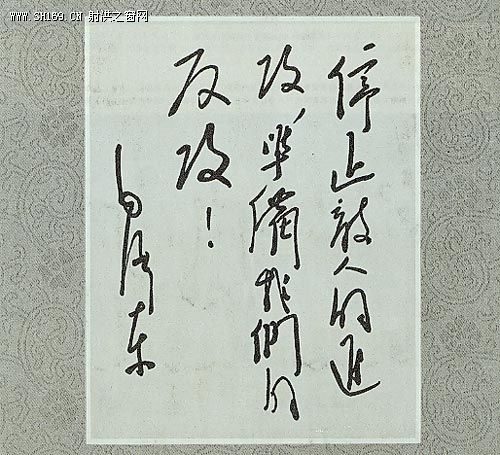 WWW.SH169.CN 射洪之窗网
停止敌人的进
攻，準備我們的
反攻！
毛泽东